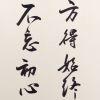 方得始終
不忘初心